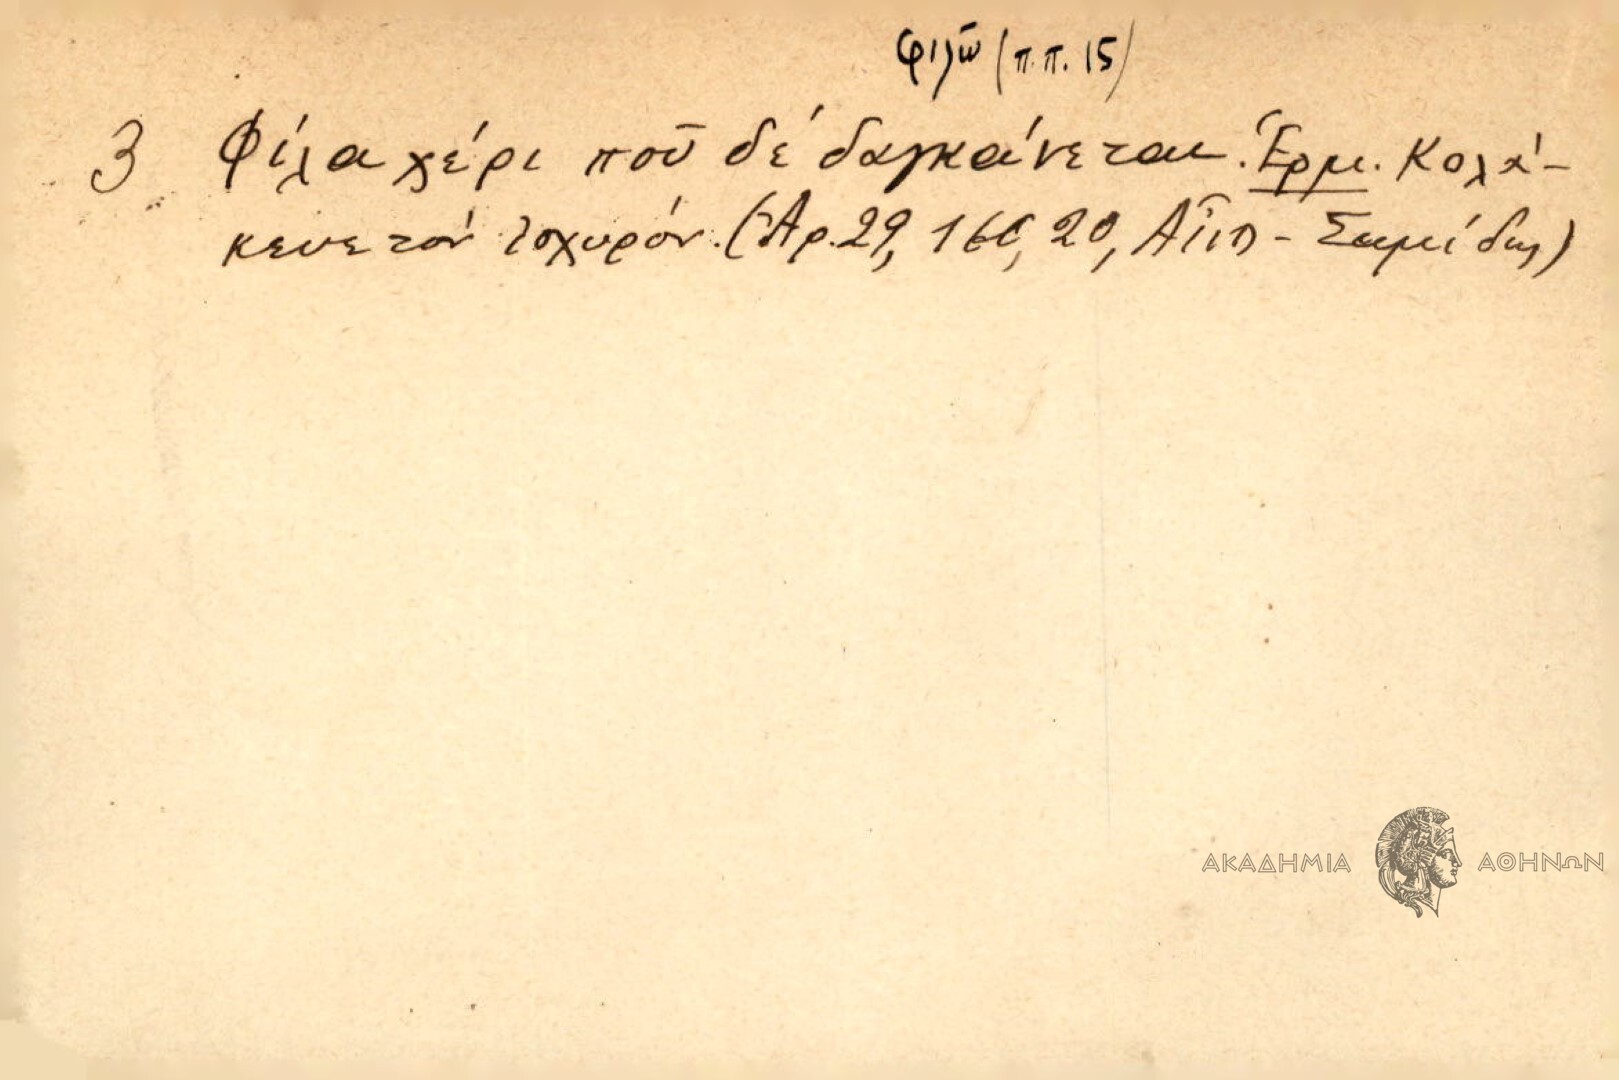 φιλῶ (π.π. 15)
3 Φίλα χέρι ποῦ δέ δαγκάνεται. Ἑρμ. Κολά-
κευε τόν ἰσχυρόν. (Ἀρ. 29, 166, 20, - Σωμίδης)
ΑΚΑΔΗΜΙΑ ΑΘΗΝΩΝ